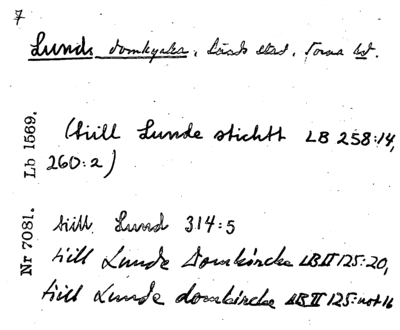 7
Lunds domkyrka, Lunds stad, Torna hd.
Lb 1569.
(till Lunde sticht LB 258:14,
260:2)
Nr 7081.
till Lund 314:5
till Lunde Domkircke LB II 125:20,
till Lunde domkircke LB II 125: not 16